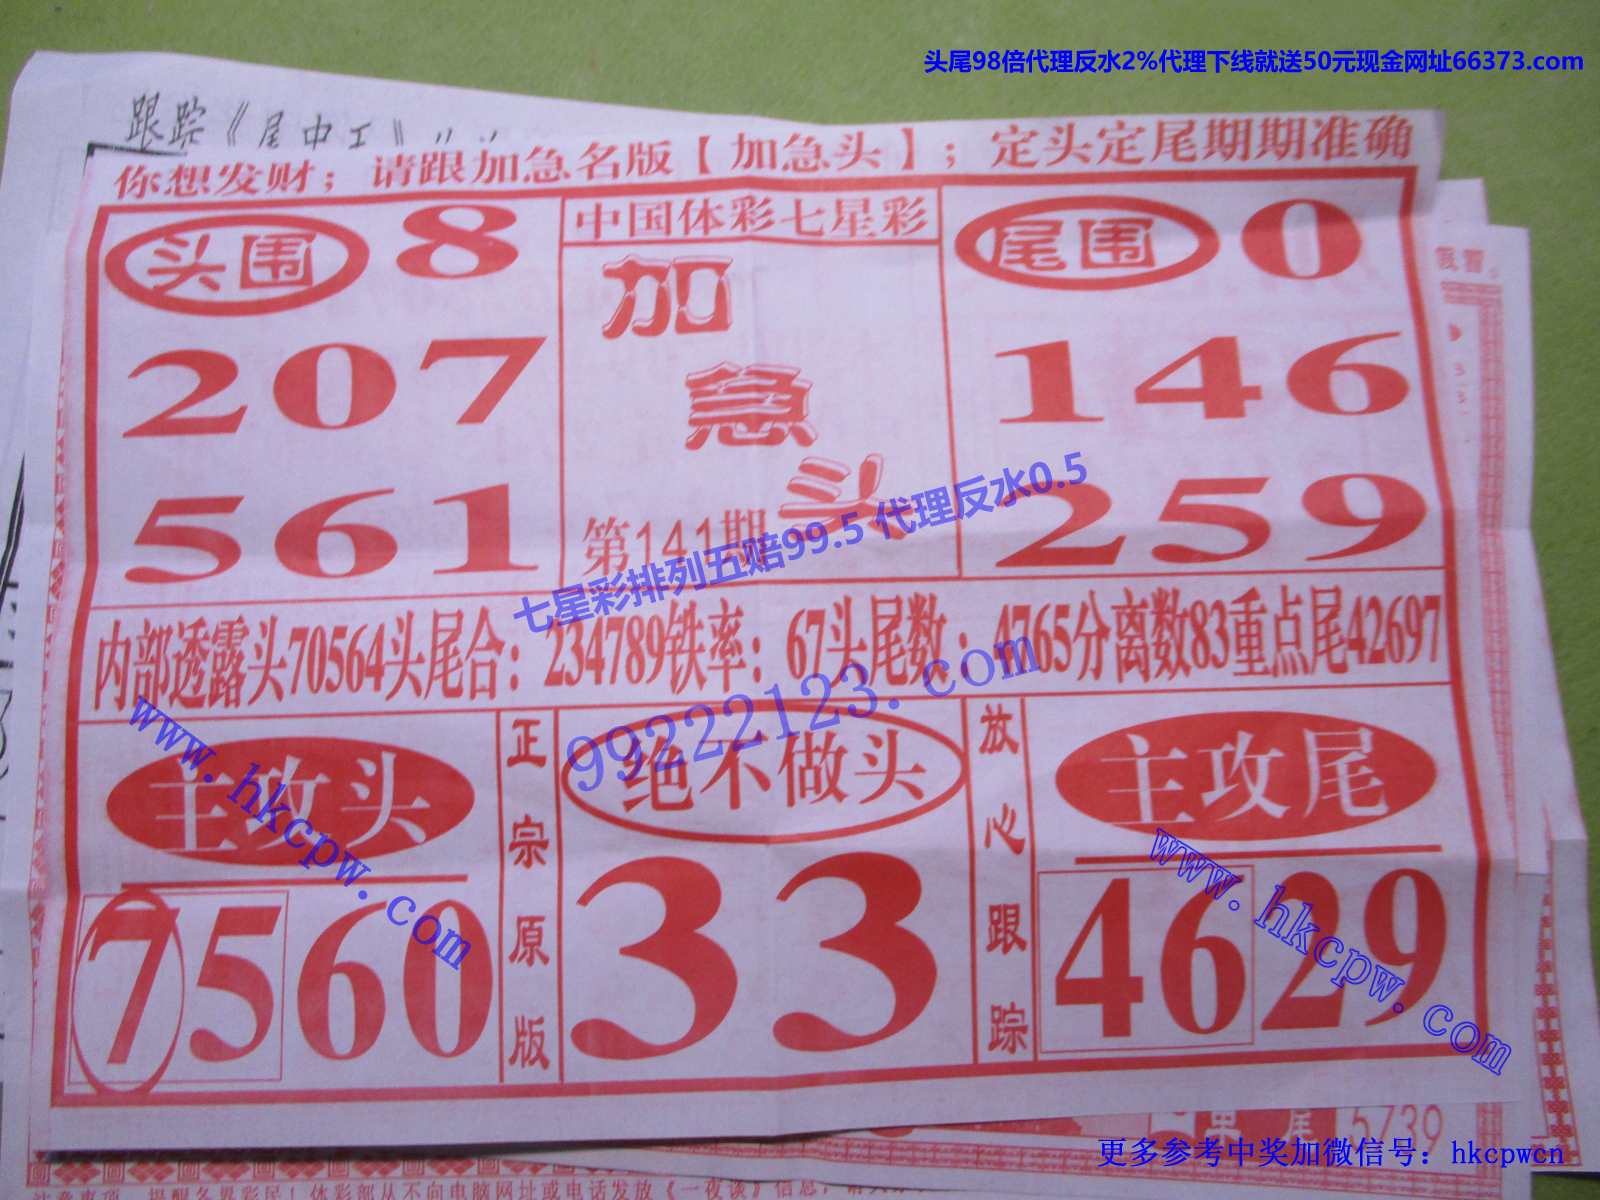 头尾98倍代理反水2%代理下线就送50元现金网址66373.com
跟踪《尾中王》
你想发财；请跟加急名版【加急头】；定头定尾期期准确
头围 8
207
561
中国体彩七星彩
加
急
头
第141期
尾围 0
146
259
七星彩排列五赔99.5 代理反水0.5
内部透露头70564头尾合：234789铁率：67头尾数：4765分离数83重点尾42697
99222123.com
www.hkcpw.com
主攻头
7560
正宗原版
绝不做头
33
放心跟踪
主攻尾
4629
www.hkcpw.com
5739
更多参考中奖加微信号：hkcpwcn